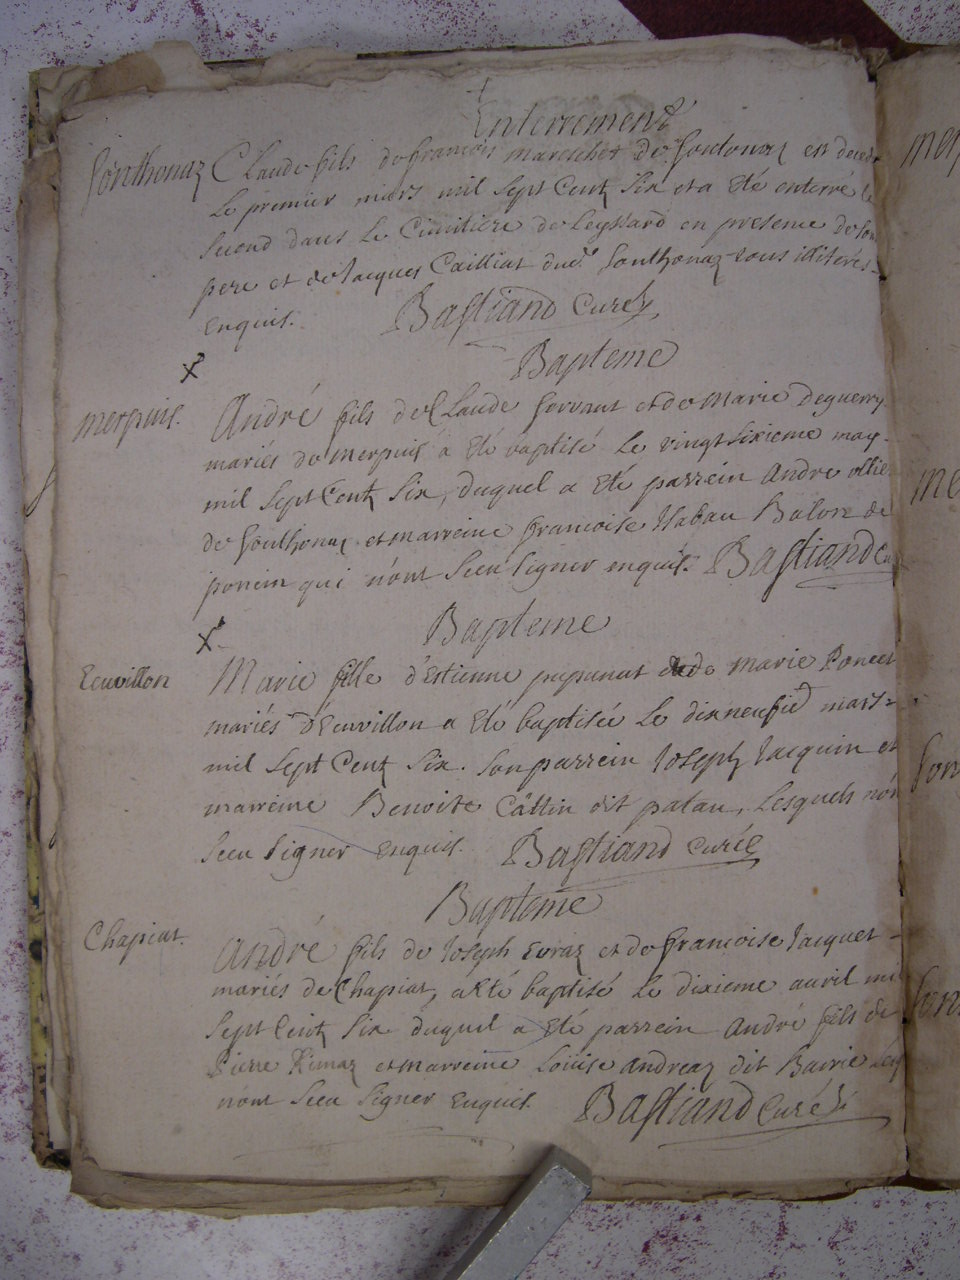 Enterrement
Sonthonaz Claude fils de francois marechet de Sontonaz est decedé
Le premier mars mil Sept Cent Six et a eté enterré le
Second dans Le Cimitiere de Leyssard en presence de son
pere et de Jacques Cailliat dud. Sonthonaz tous illiterés
Enquis. Bastiand Curé
Bapteme
merpuis. André fils de Claude servant et de Marie Deguerry
mariés de merpuis a eté baptisé Le vingt sixieme may
mil Sept Cent Six, duquel a eté parrein André ollie
de Sonthonaz et marreine francoise Isabau Balore de
poncin qui n'ont Sceu signer enquis. Bastiand Cu
Bapteme
Ecuvillon Marie fille d'Estienne pupunat et de marie Poncet
mariés d'Ecuvillon a eté baptisée Le dixneufie mars
mil Sept Cent Six. Son parrein Joseph Jacquin et
marreine Benoite Cattin dit patau, Lesquels n'ón
Sceu signer enquis. Bastiand Curée
Bapteme
Chapiat. André fils de Joseph Evraz et de francoise Jacquet
mariés de Chapiat, a eté baptisé Le dixieme auril mil
Sept Cent Six duquel a eté parrein André fils de
Pierre et marreine Loüise andreaz dit
n'ont Sceu Signer Enquis. Bastiand Curé